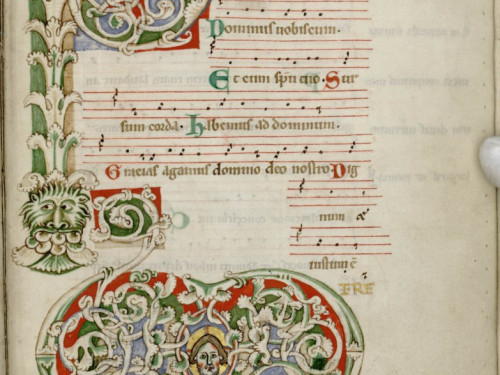 Dominus nobiscum.
Et cum spu tuo. Sur
sum corda. Habemus ad dominum.
Gracias agamus domino deo nostro. Dig
num &
iustum ē
ERE